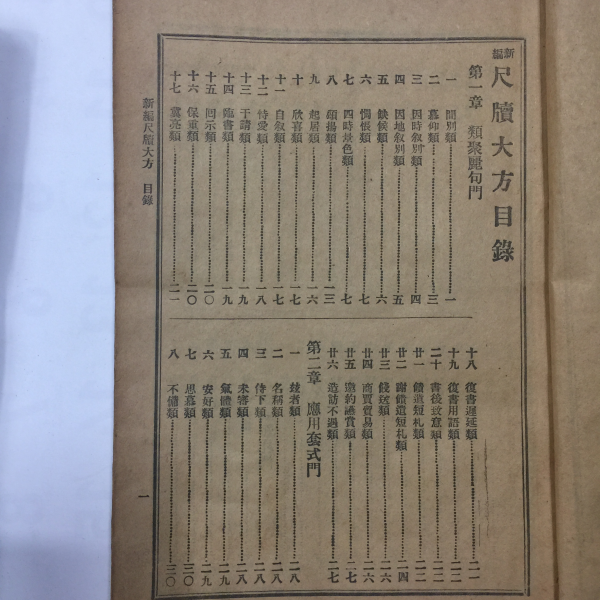 新編尺牘大方目錄
第一章 類聚毗句門
一 間別類 一
二 慕仰類 三
三 因時叙別類 四
四 因地叙別類 五
五 缺候類 六
六 惆悵類 七
七 四時景色類 七
八 頌揚類 一三
九 起居類 一六
十 欣喜類 一七
十一 自叙類 一七
十二 恃愛類 一八
十三 于請類 一九
十四 臨書類 一九
十五 回示類 二〇
十六 保重類 二〇
十七 冀亮類 二一
十八 復書遲延類 二一
十九 復書用語類 二二
二十 書後致意類 二二
廿一 饋遺短札類 二二
廿二 謝饋遺短札類 二四
廿三 餞送類 二六
廿四 商賈貿易類 二六
廿五 邀約讌賞類 二七
廿六 造訪不遇類 二七
第二章 應用套式門
一 發者類 二八
二 名稱類 二八
三 侍下類 二八
四 來審類 二八
五 氣體類 二九
六 安好類 二九
七 思慕類 三〇
八 不備類 三〇
新編尺牘大方 目錄
一